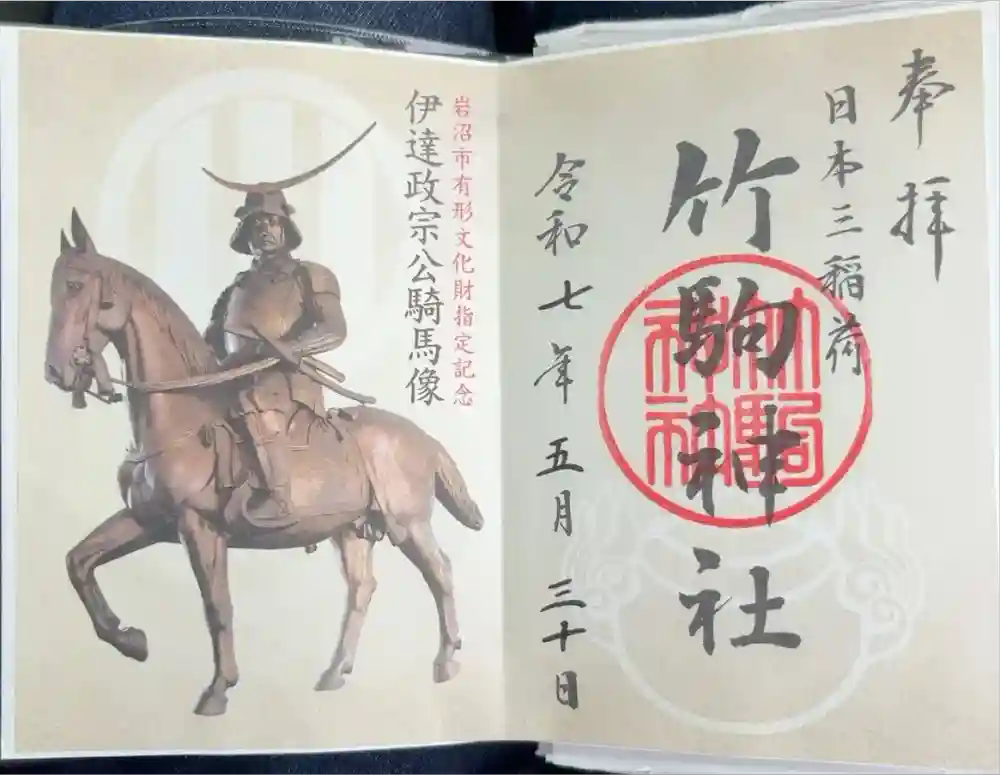 奉拝
日本三稲荷
竹駒神社
竹駒神社
令和七年五月三十日
岩沼市有形文化財指定記念
伊達政宗公騎馬像